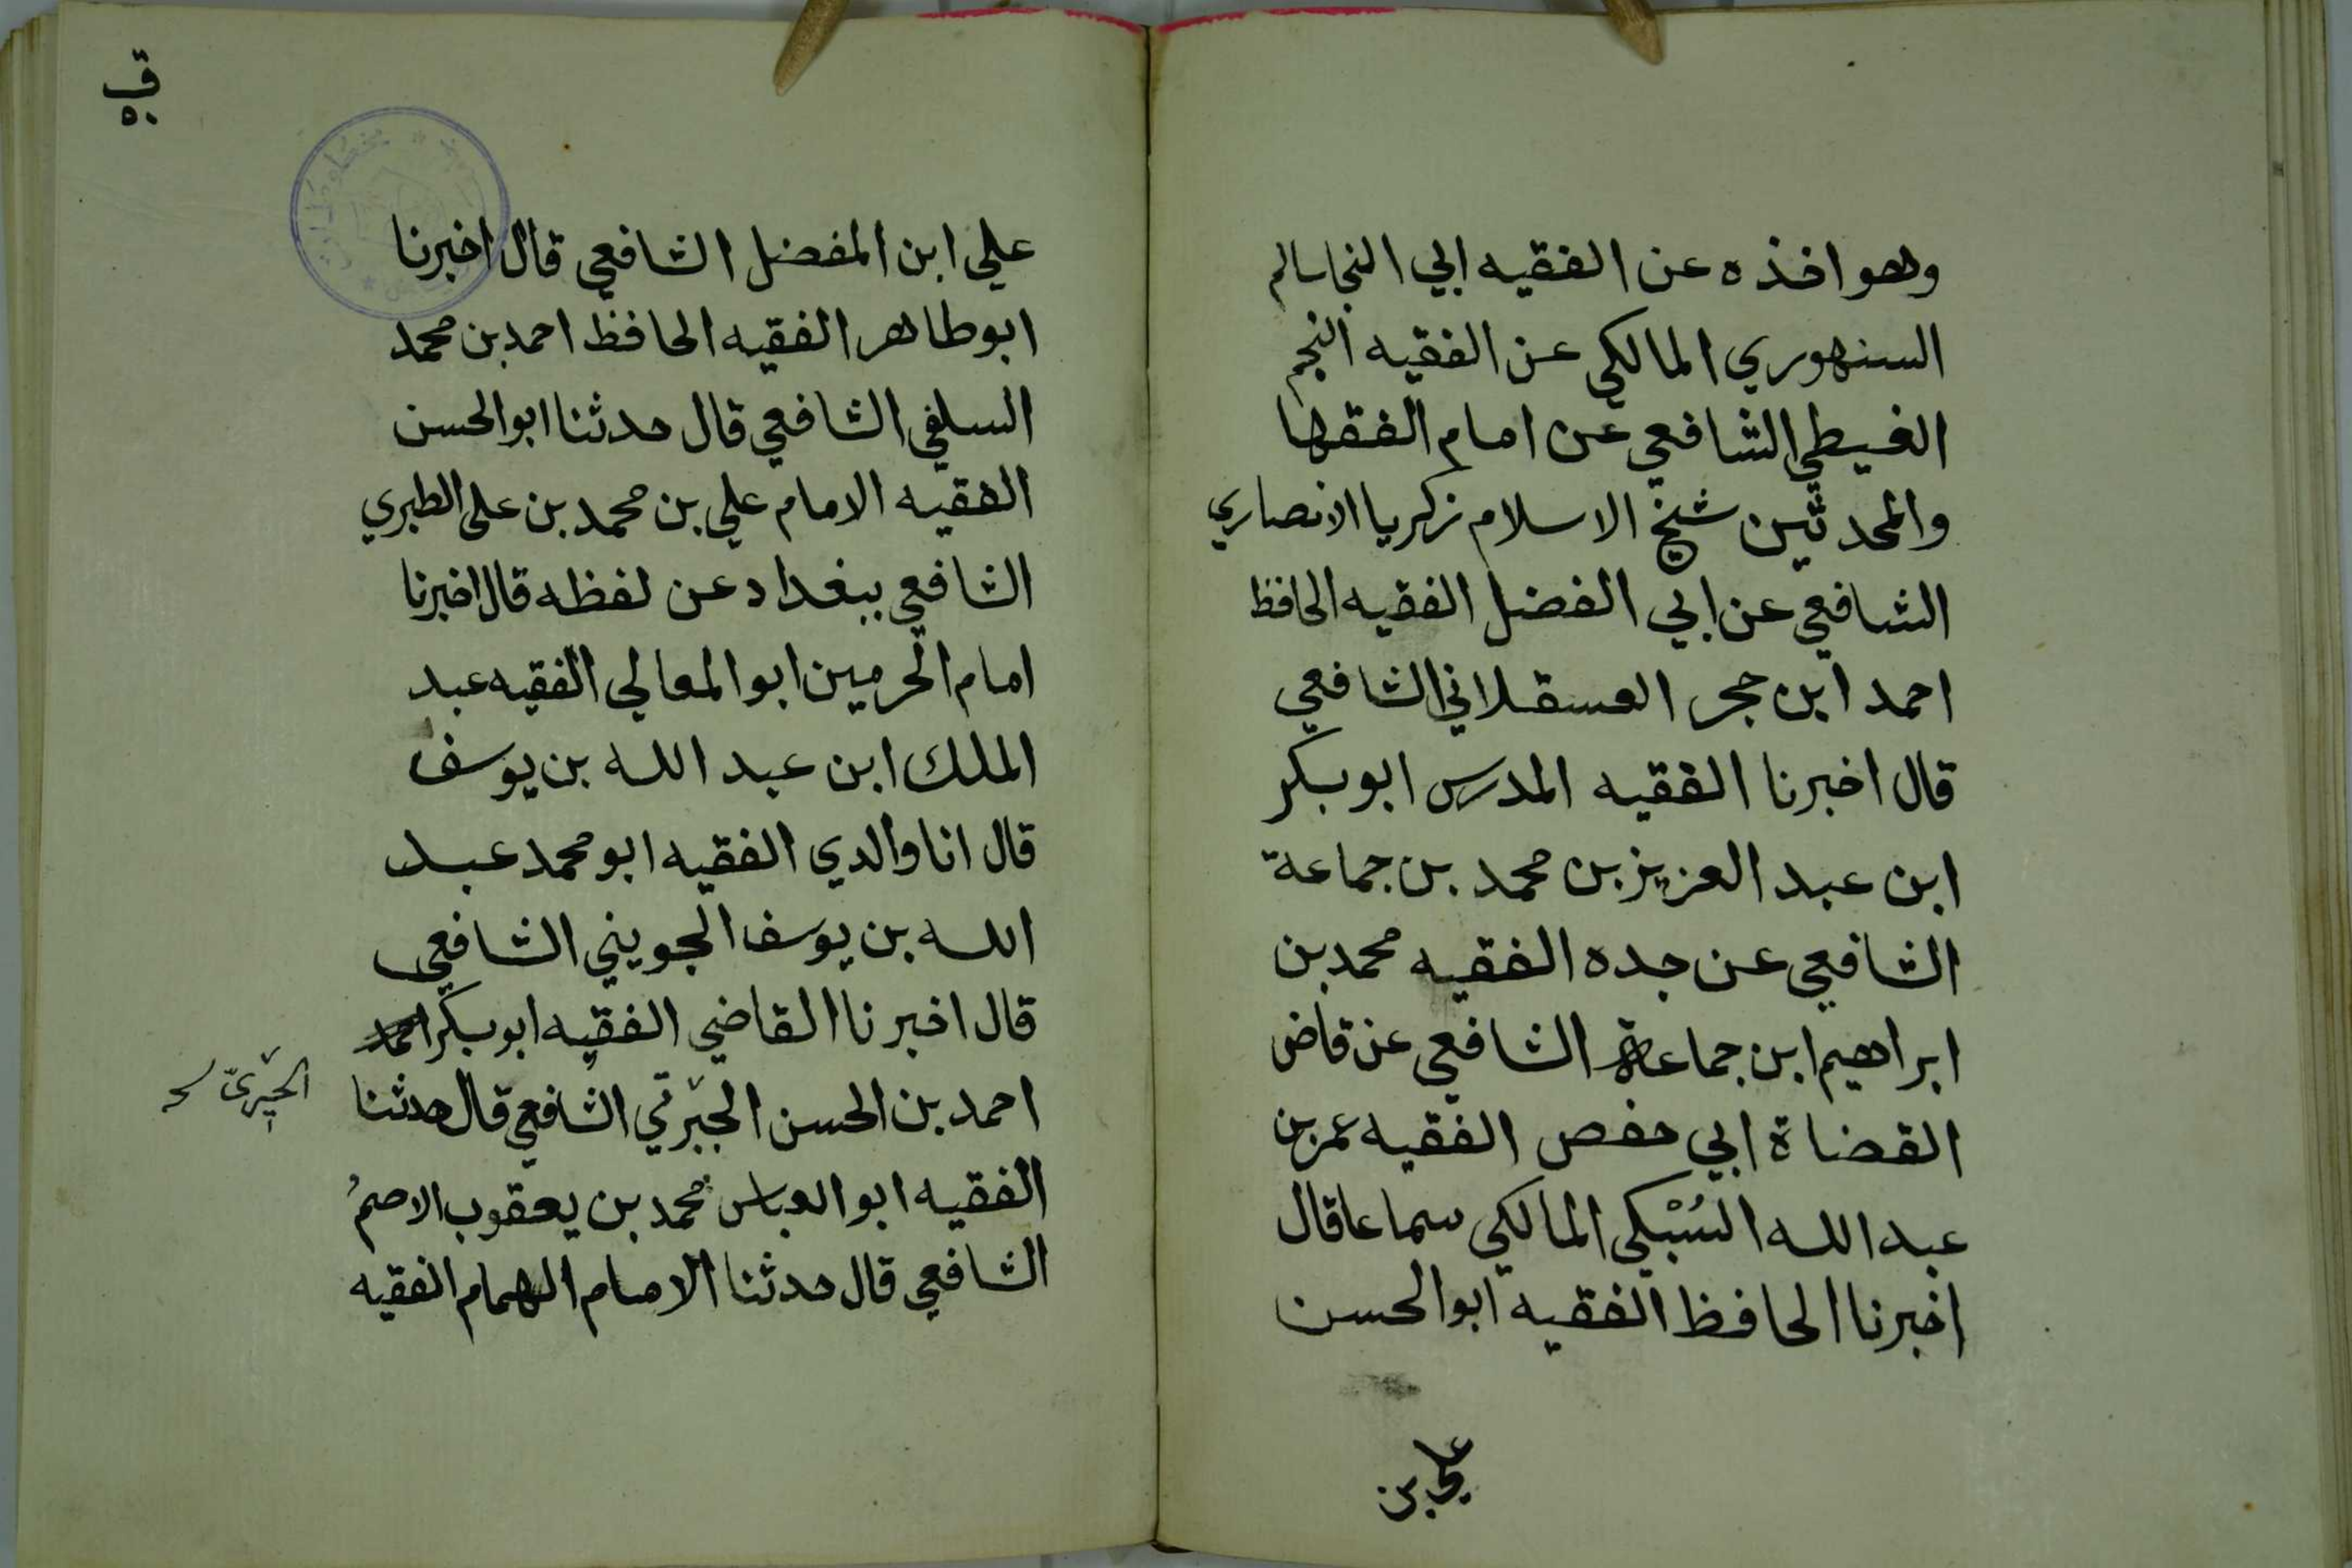 وهو اخذه عن الفقيه ابي النجا سالم
السنهوري المالكي عن الفقيه النجم
الغيطي الشافعي عن امام الفقها
والمحدثين شيخ الاسلام زكريا الانصاري
الشافعي عن ابي الفضل الفقيه الحافظ
احمد ابن حجر العسقلاني الشافعي
قال اخبرنا الفقيه المدرس ابو بكر
ابن عبد العزيز بن محمد بن جماعة
الشافعي عن جده الفقيه محمد بن
ابراهيم ابن جماعة الشافعي عن قاض
القضاة ابي حفص الفقيه عمر بن
عبد الله السُبْكي المالكي سماعا قال
اخبرنا الحافظ الفقيه ابو الحسن
علي بن
علي ابن المفضل الشافعي قال اخبرنا
ابو طاهر الفقيه الحافظ احمد بن محمد
السلفي الشافعي قال حدثنا ابو الحسن
الفقيه الامام علي بن محمد بن على الطبري
الشافعي ببغداد عن لفظه قال اخبرنا
امام الحرمين ابو المعالي الفقيه عبد
الملك ابن عبد الله بن يوسف
قال انا والدي الفقيه ابو محمد عبد
الله بن يوسف الجويني الشافعي
قال اخبرنا القاضي الفقيه ابو بكر احمد
احمد بن الحسن الجبرتي الشافعي قال حدثنا
الحيرىّ
الفقيه ابو العباس محمد بن يعقوب الاصمُ
الشافعي قال حدثنا الامام الهمام الفقيه